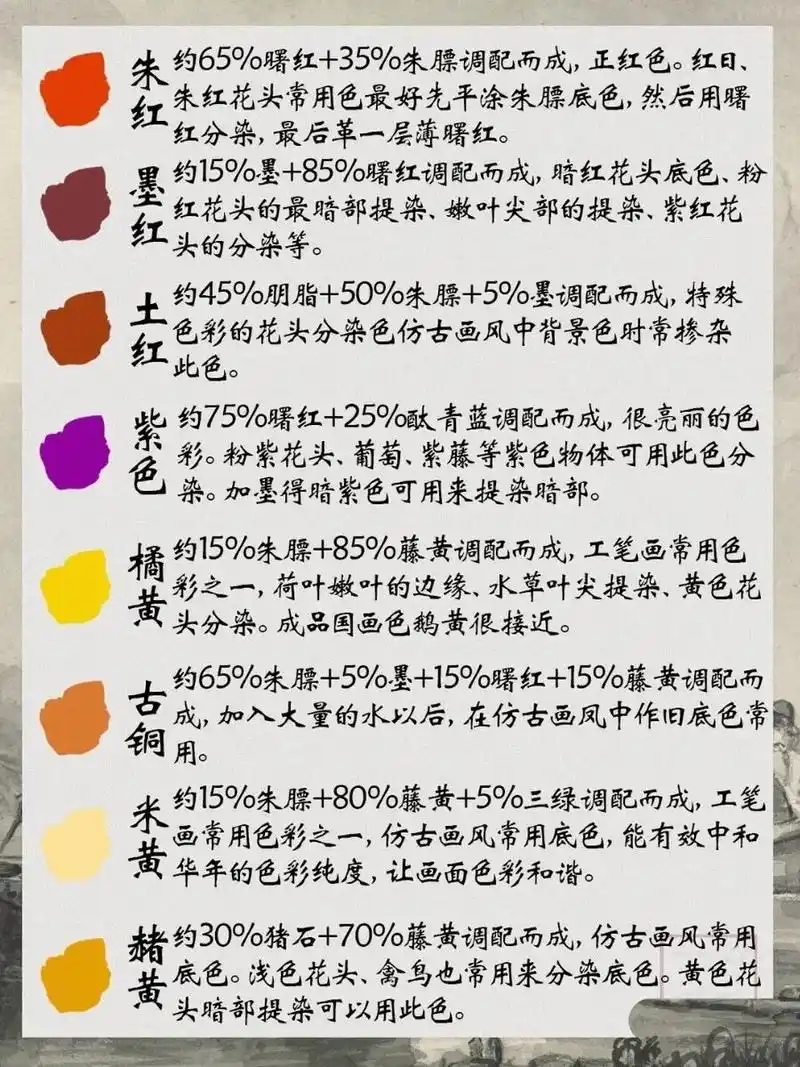 朱红
约65%曙红+35%朱膘调配而成，正红色。红日、
朱红花头常用色最好先平涂朱膘底色，然后用曙
红分染，最后革一层薄曙红。
墨红
约15%墨+85%曙红调配而成，暗红花头底色、粉
红花头的最暗部提染、嫩叶尖部的提染、紫红花
头的分染等。
土红
约45%胭脂+50%朱膘+5%墨调配而成，特殊
色彩的花头分染色仿古画风中背景色时常掺杂
此色。
紫色
约75%曙红+25%酞青蓝调配而成，很亮丽的色
彩。粉紫花头、葡萄、紫藤等紫色物体可用此色分
染。加墨得暗紫色可用来提染暗部。
橘黄
约15%朱膘+85%藤黄调配而成，工笔画常用色
彩之一，荷叶嫩叶的边缘、水草叶尖提染、黄色花
头分染。成品国画色鹅黄很接近。
古铜
约65%朱膘+5%墨+15%曙红+15%藤黄调配而
成，加入大量的水以后，在仿古画风中作旧底色常
用。
米黄
约15%朱膘+80%藤黄+5%三绿调配而成，工笔
画常用色彩之一，仿古画风常用底色，能有效中和
华年的色彩纯度，让画面色彩和谐。
赭黄
约30%猪石+70%藤黄调配而成，仿古画风常用
底色。浅色花头、禽鸟也常用来分染底色。黄色花
头暗部提染可以用此色。